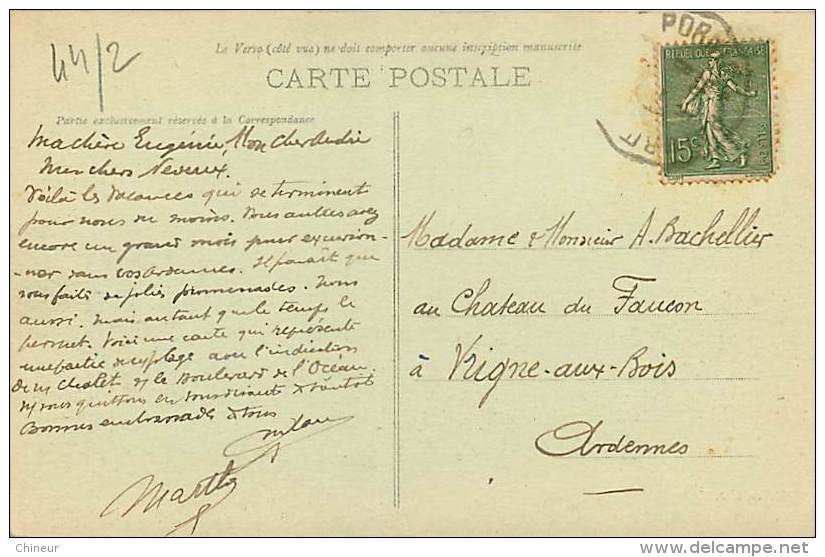 44/2
Le Verso (côté vue) ne doit comporter aucune inscription manuscrite
CARTE POSTALE
Partie exclusivement réservée à la Correspondance
POR
REPUBLIQUE FRANÇAISE
15c
POSTES
Ma chère Eugénie, Mon cher André
Mes chers Neveux,
Voilà les vacances qui se terminent
pour nous du moins. Vous autres avez
encore un grand mois pour excursion-
-ner dans vos Ardennes. Il paraît que
vous faites de jolies promenades. Nous
aussi. Mais autant que le temps le
permet. Voici une carte qui représente
une partie de la plage avec l'indication
du Chalet et le Boulevard de l'Océan.
Je vous quittons en vous disant à bientôt
Bonnes embrassades à tous
Marthe
Madame & Monsieur A. Bachellier
au Chateau du Faucon
à Vrigne-aux-Bois
Ardennes
Chineur
delcampe.net